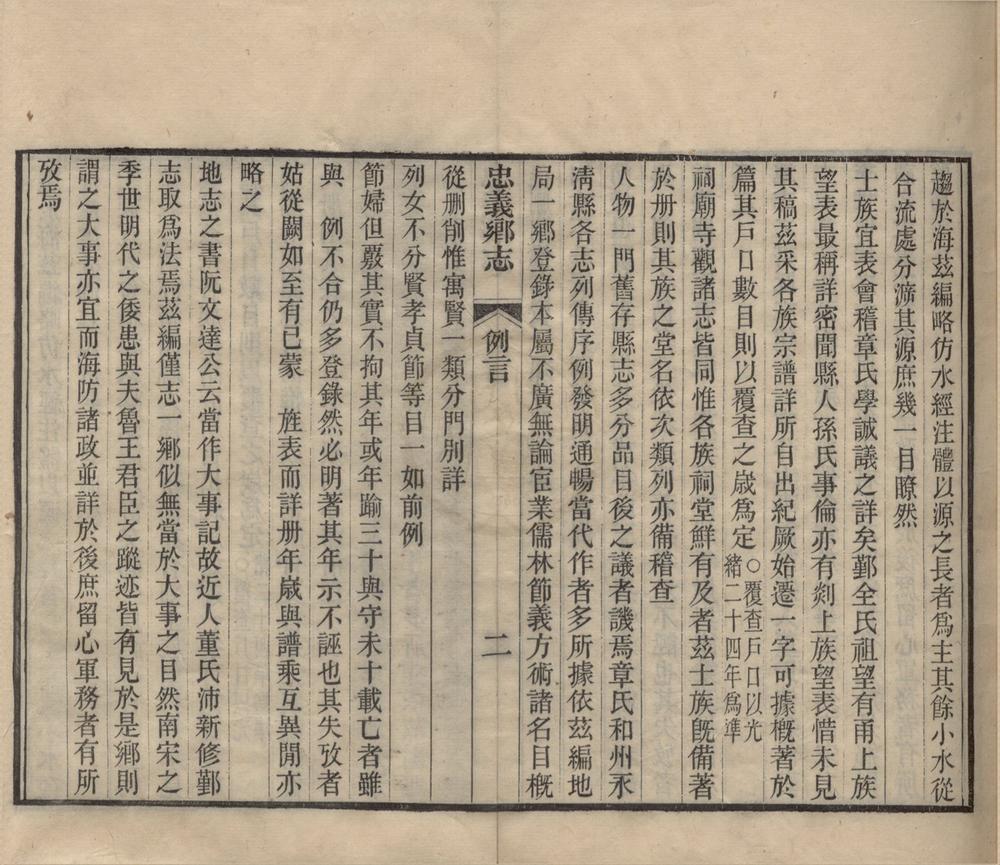 趨於海茲編略仿水經注體以源之長者爲主其餘小水從
合流處分漭其源庶幾一目瞭然
士族宜表會稽章氏學誠議之詳矣鄞全氏祖望有甬上族
望表最稱詳密聞縣人孫氏事倫亦有剡上族望表惜未見
其稿茲采各族宗譜詳所自出紀厥始遷一字可據槪著於
篇其戶口數目則以覆查之歲爲定○覆查戶口以光
緒二十四年爲準
祠廟寺觀諸志皆同惟各族祠堂鮮有及者茲士族旣備著
於册則其族之堂名依次類列亦備稽查
人物一門舊存縣志多分品目後之議者譏焉章氏和州永
淸縣各志列傳序例發明通暢當代作者多所據依茲編地
局一鄕登錄本屬不廣無論宦業儒林節義方術諸名目槪
忠義鄕志
例言
二
從删削惟寓賢一類分門別詳
列女不分賢孝貞節等目一如前例
節婦但覈其實不拘其年或年踰三十與守未十載亡者雖
與 例不合仍多登錄然必明著其年示不誣也其失攷者
姑從闕如至有已蒙 旌表而詳册年歲與譜乘互異閒亦
略之
地志之書阮文達公云當作大事記故近人董氏沛新修鄞
志取爲法焉茲編僅志一鄕似無當於大事之目然南宋之
季世明代之倭患與夫魯王君臣之蹤迹皆有見於是鄕則
謂之大事亦宜而海防諸政並詳於後庶留心軍務者有所
攷焉